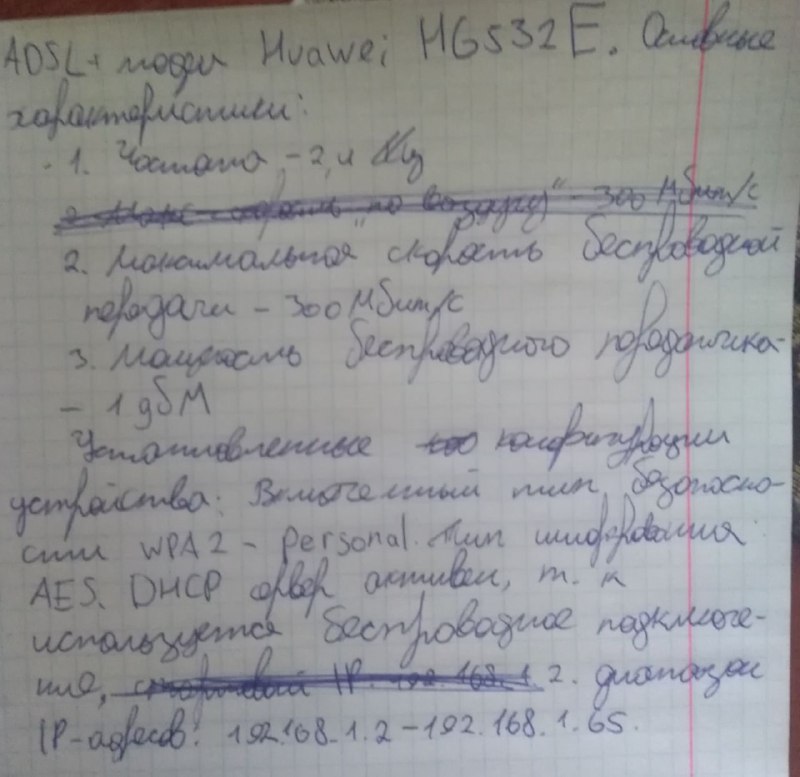 ADSL+ модем Huawei HG532E. Основные
характеристики:
1. Частота - 2,4 ГГц
2. Макс. скорость "по воздуху" - 300 Мбит/с
2. Максимальная скорость беспроводной
передачи - 300 Мбит/с
3. Мощность беспроводного передатчика
- 1 дбМ
Установленные конфигурации
устройства: Включенный тип безопасно-
сти WPA2 - Personal. Тип шифрования:
AES. DHCP сервер активен, т. к
используется беспроводное подключе-
ние, стартовый IP. 192.168.1.2. диапазон
IP-адресов: 192.168.1.2 - 192.168.1.65.